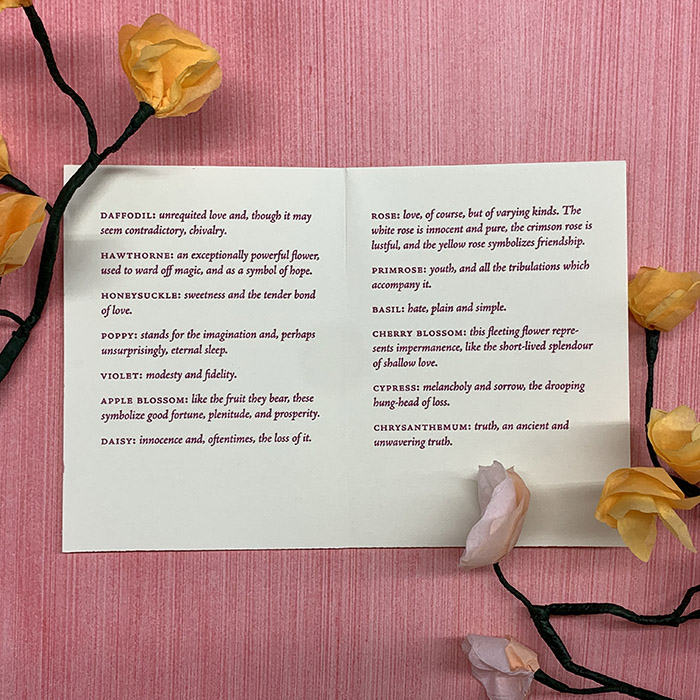 DAFFODIL: unrequited love and, though it may
seem contradictory, chivalry.
HAWTHORNE: an exceptionally powerful flower,
used to ward off magic, and as a symbol of hope.
HONEYSUCKLE: sweetness and the tender bond
of love.
POPPY: stands for the imagination and, perhaps
unsurprisingly, eternal sleep.
VIOLET: modesty and fidelity.
APPLE BLOSSOM: like the fruit they bear, these
symbolize good fortune, plenitude, and prosperity.
DAISY: innocence and, oftentimes, the loss of it.
ROSE: love, of course, but of varying kinds. The
white rose is innocent and pure, the crimson rose is
lustful, and the yellow rose symbolizes friendship.
PRIMROSE: youth, and all the tribulations which
accompany it.
BASIL: hate, plain and simple.
CHERRY BLOSSOM: this fleeting flower repre-
sents impermanence, like the short-lived splendour
of shallow love.
CYPRESS: melancholy and sorrow, the drooping
hung-head of loss.
CHRYSANTHEMUM: truth, an ancient and
unwavering truth.